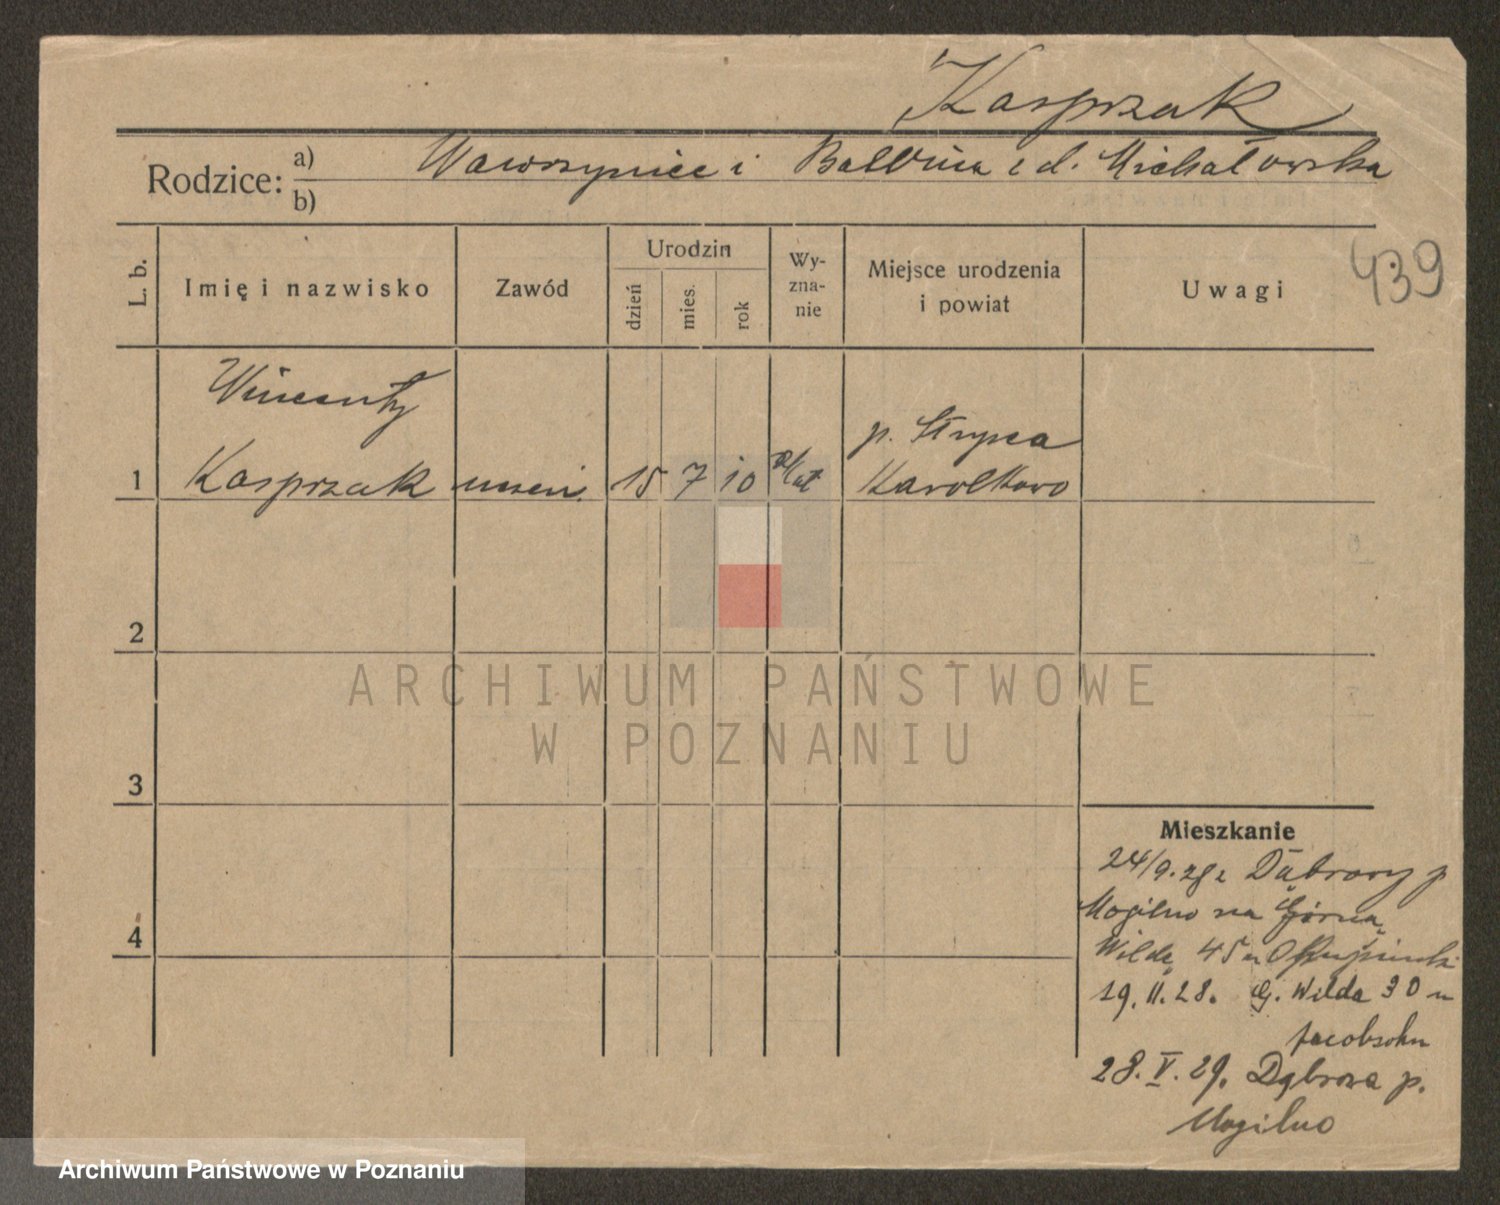 Kasprzak
Rodzice: a) Wawrzyniec i Balbina z d. Michałowska
b)
439
L. b.
Imię i nazwisko
Zawód
Urodzin
dzień
mies.
rok
Wy-
zna-
nie
Miejsce urodzenia
i powiat
Uwagi
Wincenty
p. Strypca
1 Kasprzak uczeń 15 7 10 R/kat Karolkowo
2
3
4
ARCHIWUM PAŃSTWOWE
W POZNANIU
Mieszkanie
24/9.28 z Dąbrowy p
Mogilno na Górną
Wildę 45 u
19.II.28. G. Wilda 30 u
Jacobsohn
28.V.29. Dąbrowa p.
Mogilno
Archiwum Państwowe w Poznaniu